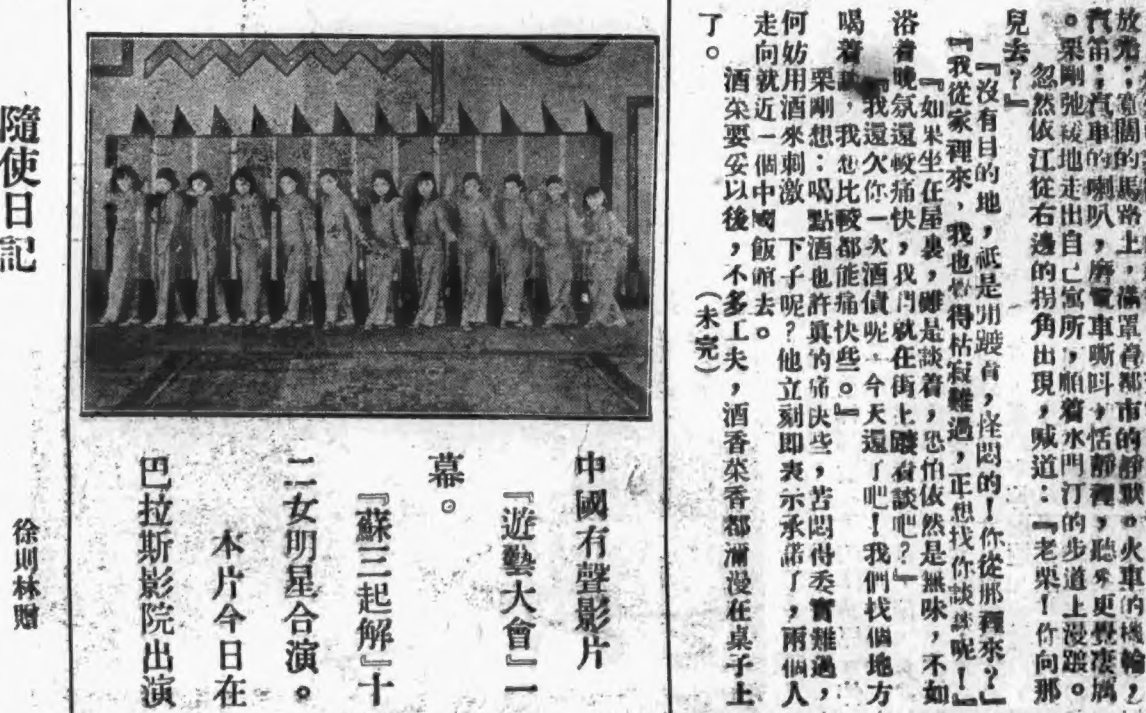 放光；寬闊的馬路上，滿罩着都市的靜默。火車的機輪，
汽笛；汽車的喇叭，磨電車嘶叫，恬靜裡，聽來更覺凄厲
。栗剛弛緩地走出自己寓所，順着水門汀的步道上漫踱。
忽然依江從右邊的拐角出現，喊道：『老栗！你向那
兒去？』
『沒有目的地，祇是
踱着，怪悶的！你從那裡來？』
『我從家裡來，我也覺得枯寂難過，正想找你談談呢！』
『如果坐在屋裏，雖是談着，恐怕依然是無味，不如
浴着晚氛還較痛快，我們就在街上踱着談吧？』
『我還欠你一次酒債呢，今天還了吧！我們找個地方
喝着談，我想比較都能痛快些。』
栗剛想：喝點酒也許真的痛快些，苦悶得委實難過，
何妨用酒來刺激一下子呢？他立刻即表示承諾了，兩個人
走向就近一個中國飯館去。
酒菜要妥以後，不多工夫，酒香菜香都瀰漫在桌子上
了。
（未完）
中國有聲影片
『遊藝大會』一
幕。
『蘇三起解』十
二女明星合演。
本片今日在
巴拉斯影院出演
隨使日記
徐則林贈